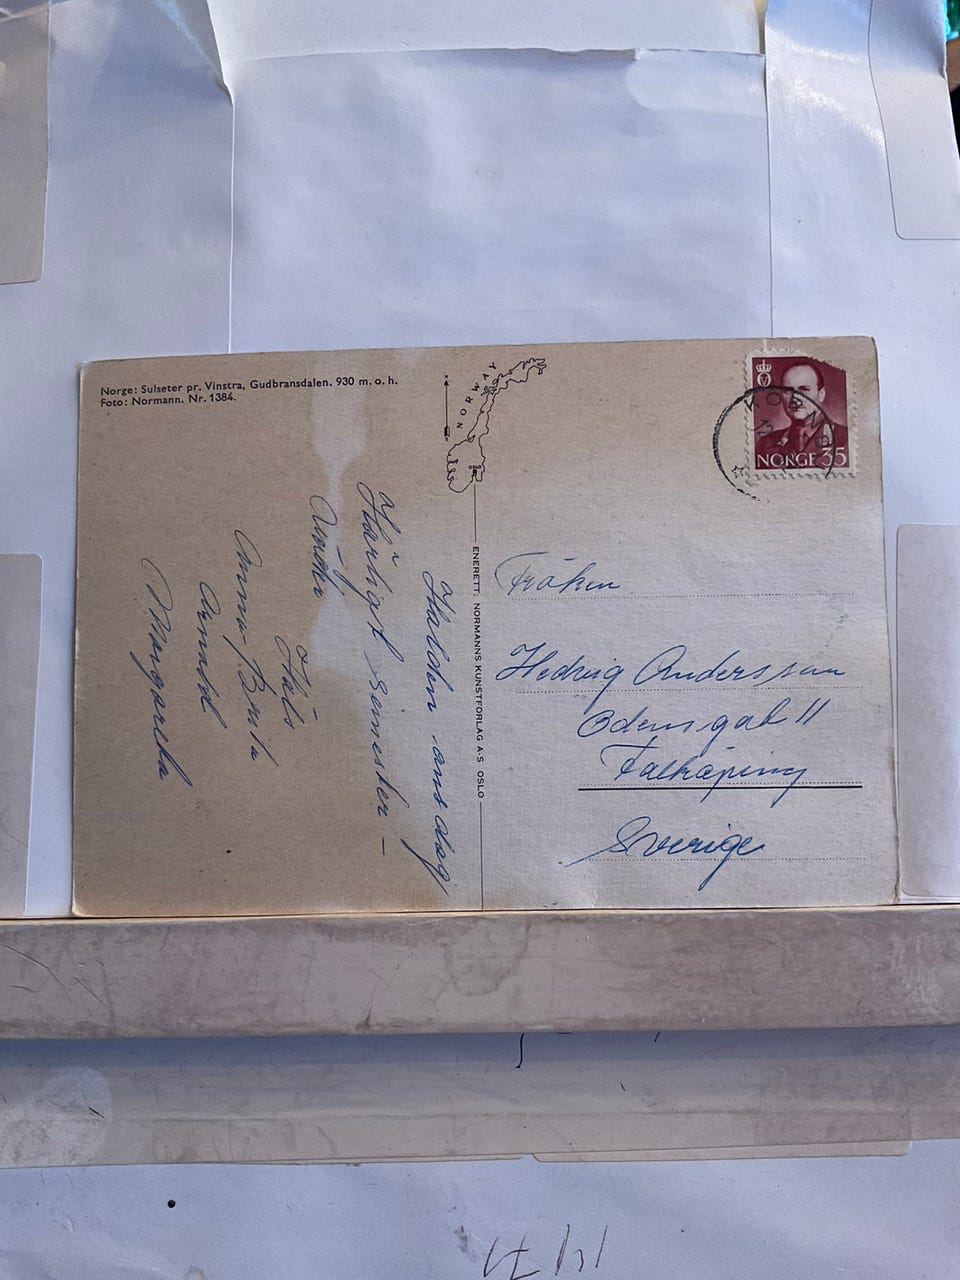 Norge: Sulseter pr. Vinstra, Gudbransdalen. 930 m. o. h.
Foto: Normann. Nr. 1384.
NORWAY
OSLO
ENERETT: NORMANNS KUNSTFORLAG A-S OSLO
NORGE 35
Halden onsdag
Härligt semester –
väder
Häls
Anna-Brita
Arnold
Margareta
Fröken
Hedvig Andersson
Odensgat 11
Falköping
Sverige